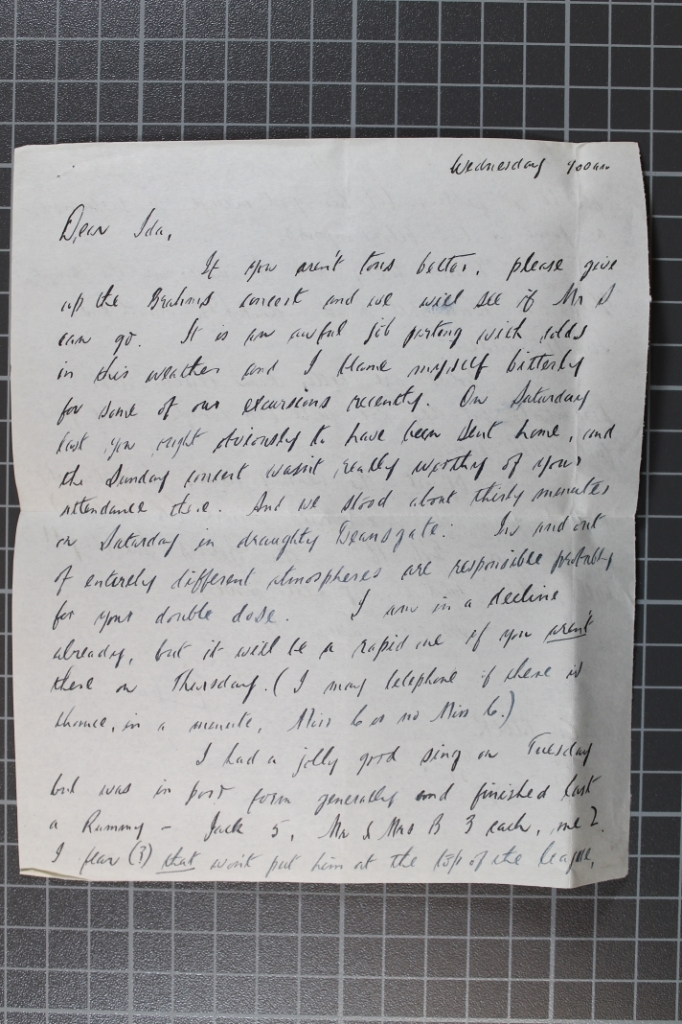 Wednesday 9.00am
Dear Ida,
If you aren't tons better, please give
up the Brahms concert and we will see if Mr S
can go. It is an awful job parting with colds
in this weather and I blame myself bitterly
for some of our excursions recently. On Saturday
last you ought obviously to have been sent home, and
the Sunday concert wasn't really worthy of your
attendance there. And we stood about thirty minutes
on Saturday in draughty Deansgate. In and out
of entirely different atmospheres are responsible probably
for your double dose. I am in a decline
already, but it will be a rapid one if you aren't
there on Thursday. (I may telephone if there is
chance, in a minute, Miss C or no Miss C.)
I had a jolly good sing on Tuesday
but was in poor form generally and finished last
a Rummy - Jack 5, Mr & Mrs B 3 each, me 2.
I fear (?) that won't put him at the top of the league,